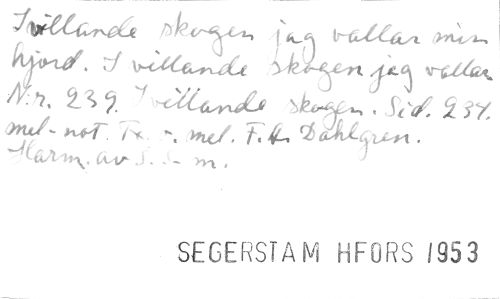 I villande skogen jag vallar min
hjord. I villande skogen jag vallar
N:r. 239. I villande skogen. Sid. 234.
mel-not. Tx. o. mel. F.A. Dahlgren.
Harm. av S. S-m.
SEGERSTAM HFORS 1953